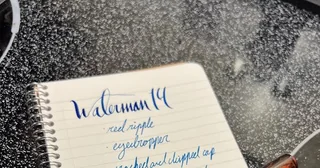 Waterman 14
red ripple
eyedropper
and chipped cap